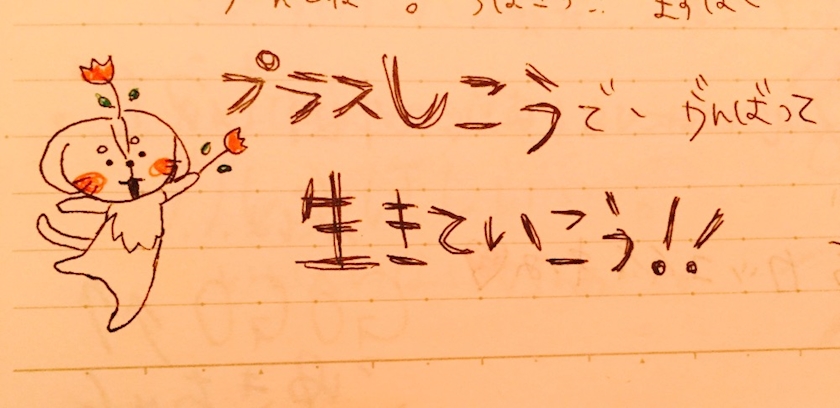 プラスしこうで、がんばって
生きていこう!!